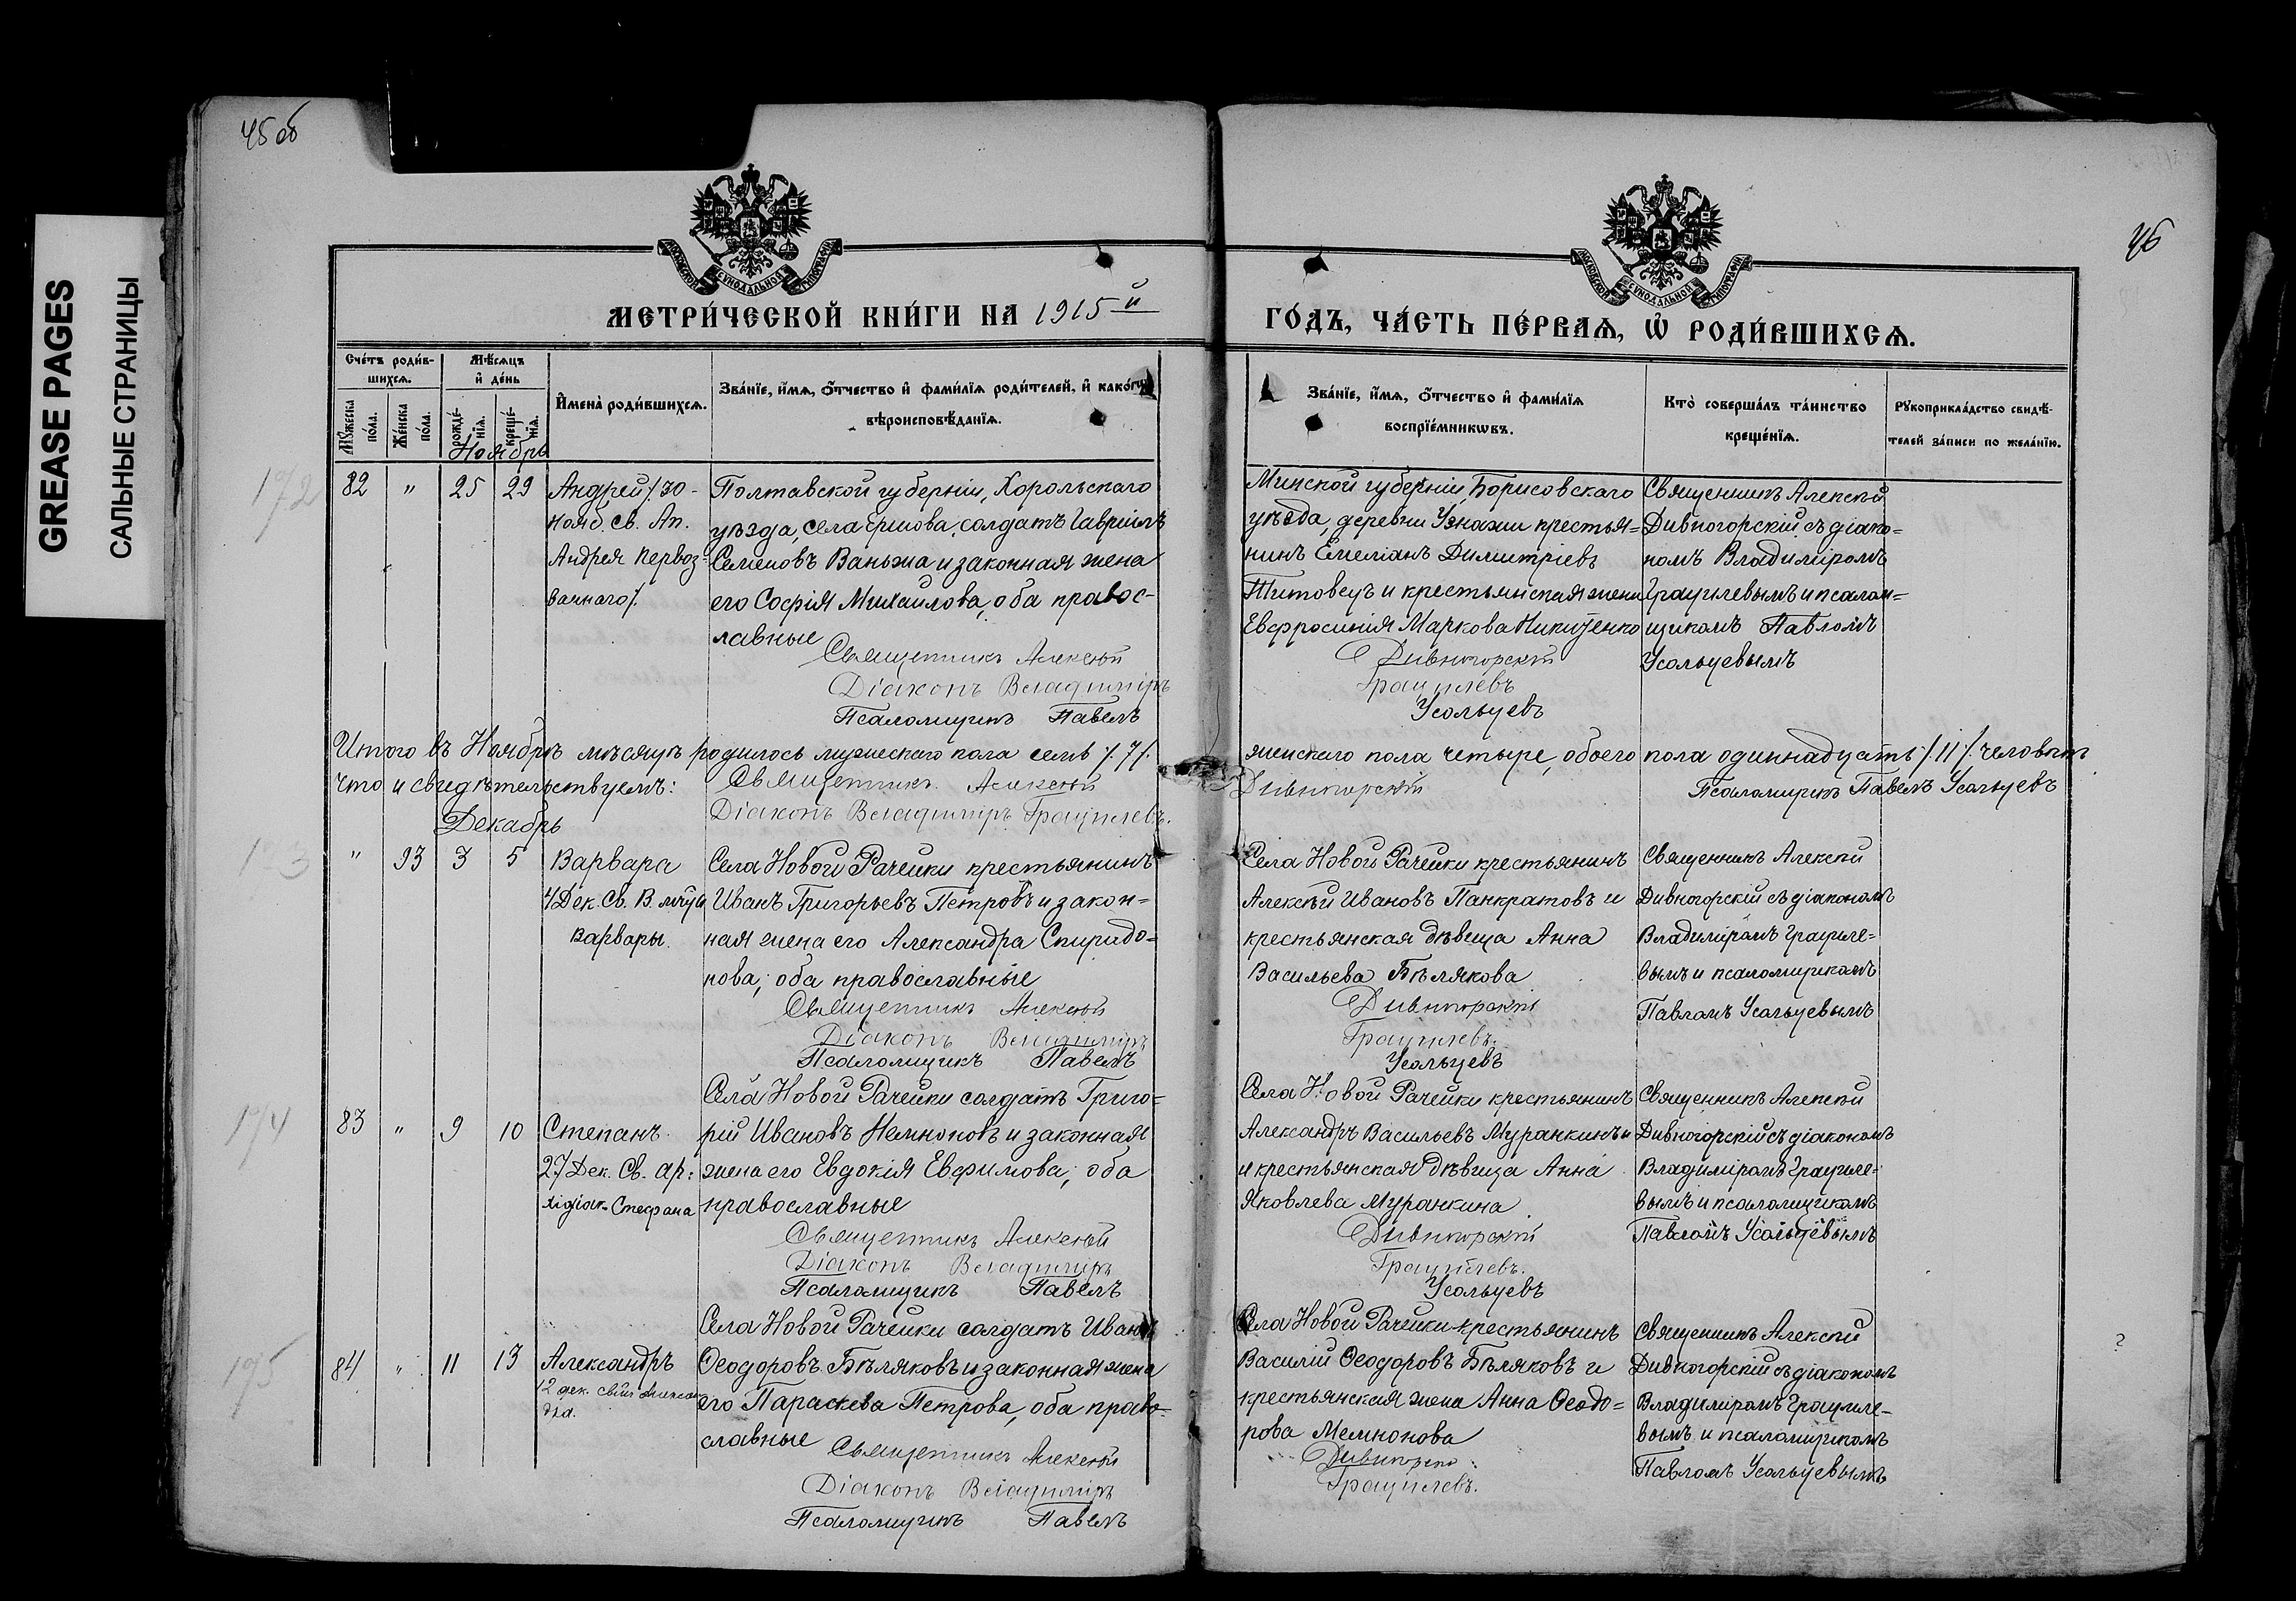 45 об
46
GREASE PAGES
САЛЬНЫЕ СТРАНИЦЫ
МЕТРИ́ЧЕСКОЙ КНИ́ГИ НА 1915 й
ГО́ДЪ, ЧА́СТЬ ПЕ́РВАѦ, Ѿ РОДИ́ВШИХСѦ.
Сче́тъ роди́в-
шихсѧ.
Мѣ́сѧцъ
и҆ де́нь
Му́жеска
по́ла.
Же́нска
по́ла.
рожде́-
нїѧ.
креще́-
нїѧ.
И҆мена̀ роди́вшихсѧ.
Зва́нїе, и҆́мѧ, ѻ҆́тчество и҆ фами́лїѧ роди́телей, и҆ како́гѡ
вѣроисповѣ́данїѧ.
Зва́нїе, и҆́мѧ, ѻ҆́тчество и҆ фами́лїѧ
воспрїе́мникѡвъ.
Кто̀ соверша́лъ та́инство
креще́нїѧ.
Рꙋкоприкла́дство свидѣ́-
телей за́писи по жела́нїю.
Ноябрь
172
82 " 25 29
Андрей /30 -
нояб. Св. Ап.
Андрея Первоз-
ваннаго/.
Полтавской губерніи, Хорольскаго
уѣзда, села Ершова, солдатъ Гавріилъ
Семеновъ Ваньжа и законная жена
его Софія Михаилова, оба правос-
лавные
Священникъ Алексѣй
Діаконъ Владиміръ
Псаломщикъ Павелъ
Минской губерніи Борисовскаго
уѣзда, деревни Узнажи крестья=
нинъ Емеліанъ Димитріевъ
Титовецъ и крестьянская жена
Евфросинія Маркова Никитенко
Дивногорскій
Грацилевъ
Усольцевъ
Священникъ Алексѣй
Дивногорскій съ діако=
номъ Владиміромъ
Грацилевымъ и псалом=
щикомъ Павломъ
Усольцевымъ
Итого въ Ноябрѣ мѣсяцѣ родилось мужескаго пола семь /.7/. женскаго пола четыре, обоего пола одиннадцать /.11/. человѣкъ
Что и свидѣтельствуемъ: Священникъ Алексѣй Дивногорскій Псаломщикъ Павелъ Усольцевъ
Діаконъ Владиміръ Грацилевъ.
Декабрь
173
" 93 3 5
Варвара
4 Дек. Св. В. мч-цы
Варвары.
Села Новой Рачейки крестьянинъ
Иванъ Григорьевъ Петровъ и закон=
ная жена его Александра Спиридо=
нова; оба православные
Священникъ Алексѣй
Діаконъ Владиміръ
Псаломщикъ Павелъ
Села Новой Рачейки крестьянинъ
Алексѣй Ивановъ Панкратовъ и
крестьянская дѣвица Анна
Васильева Бѣлякова
Дивногорскій
Грацилевъ.
Усольцевъ
Священникъ Алексѣй
Дивногорскій съ діакономъ
Владиміромъ Грациле=
вымъ и псаломщикомъ
Павломъ Усольцевымъ
174
83 " 9 10
Степанъ
27 Дек. Св. ар:
хидіак. Стефана
Села Новой Рачейки солдатъ Григо=
рій Ивановъ Мемноновъ и законная
жена его Евдокія Евфимова; оба
православные
Священникъ Алексѣй
Діаконъ Владиміръ
Псаломщикъ Павелъ
Села Новой Рачейки крестьянинъ
Александръ Васильевъ Муранкинъ и
и крестьянская дѣвица Анна
Яковлева Муранкина
Дивногорскій
Грацилевъ.
Усольцевъ
Священникъ Алексѣй
Дивногорскій съ діакономъ
Владиміромъ Грациле=
вымъ и псаломщикомъ
Павломъ Усольцевымъ
175
84 " 11 13
Александръ
12 дек.
Села Новой Рачейки солдатъ Иванъ
Ѳеодоровъ Бѣляковъ и законная жена
его Параскева Петрова, оба право=
славные
Священникъ Алексѣй
Діаконъ Владиміръ
Псаломщикъ Павелъ
Села Новой Рачейки крестьянинъ
Василій Ѳеодоровъ Бѣляковъ и
крестьянская жена Анна Ѳеодо=
рова Мемнонова
Грацилевъ.
Священникъ Алексѣй
Дивногорскій съ діакономъ
Владиміромъ Грациле-
вымъ и псаломщикомъ
Павломъ Усольцевымъ
?